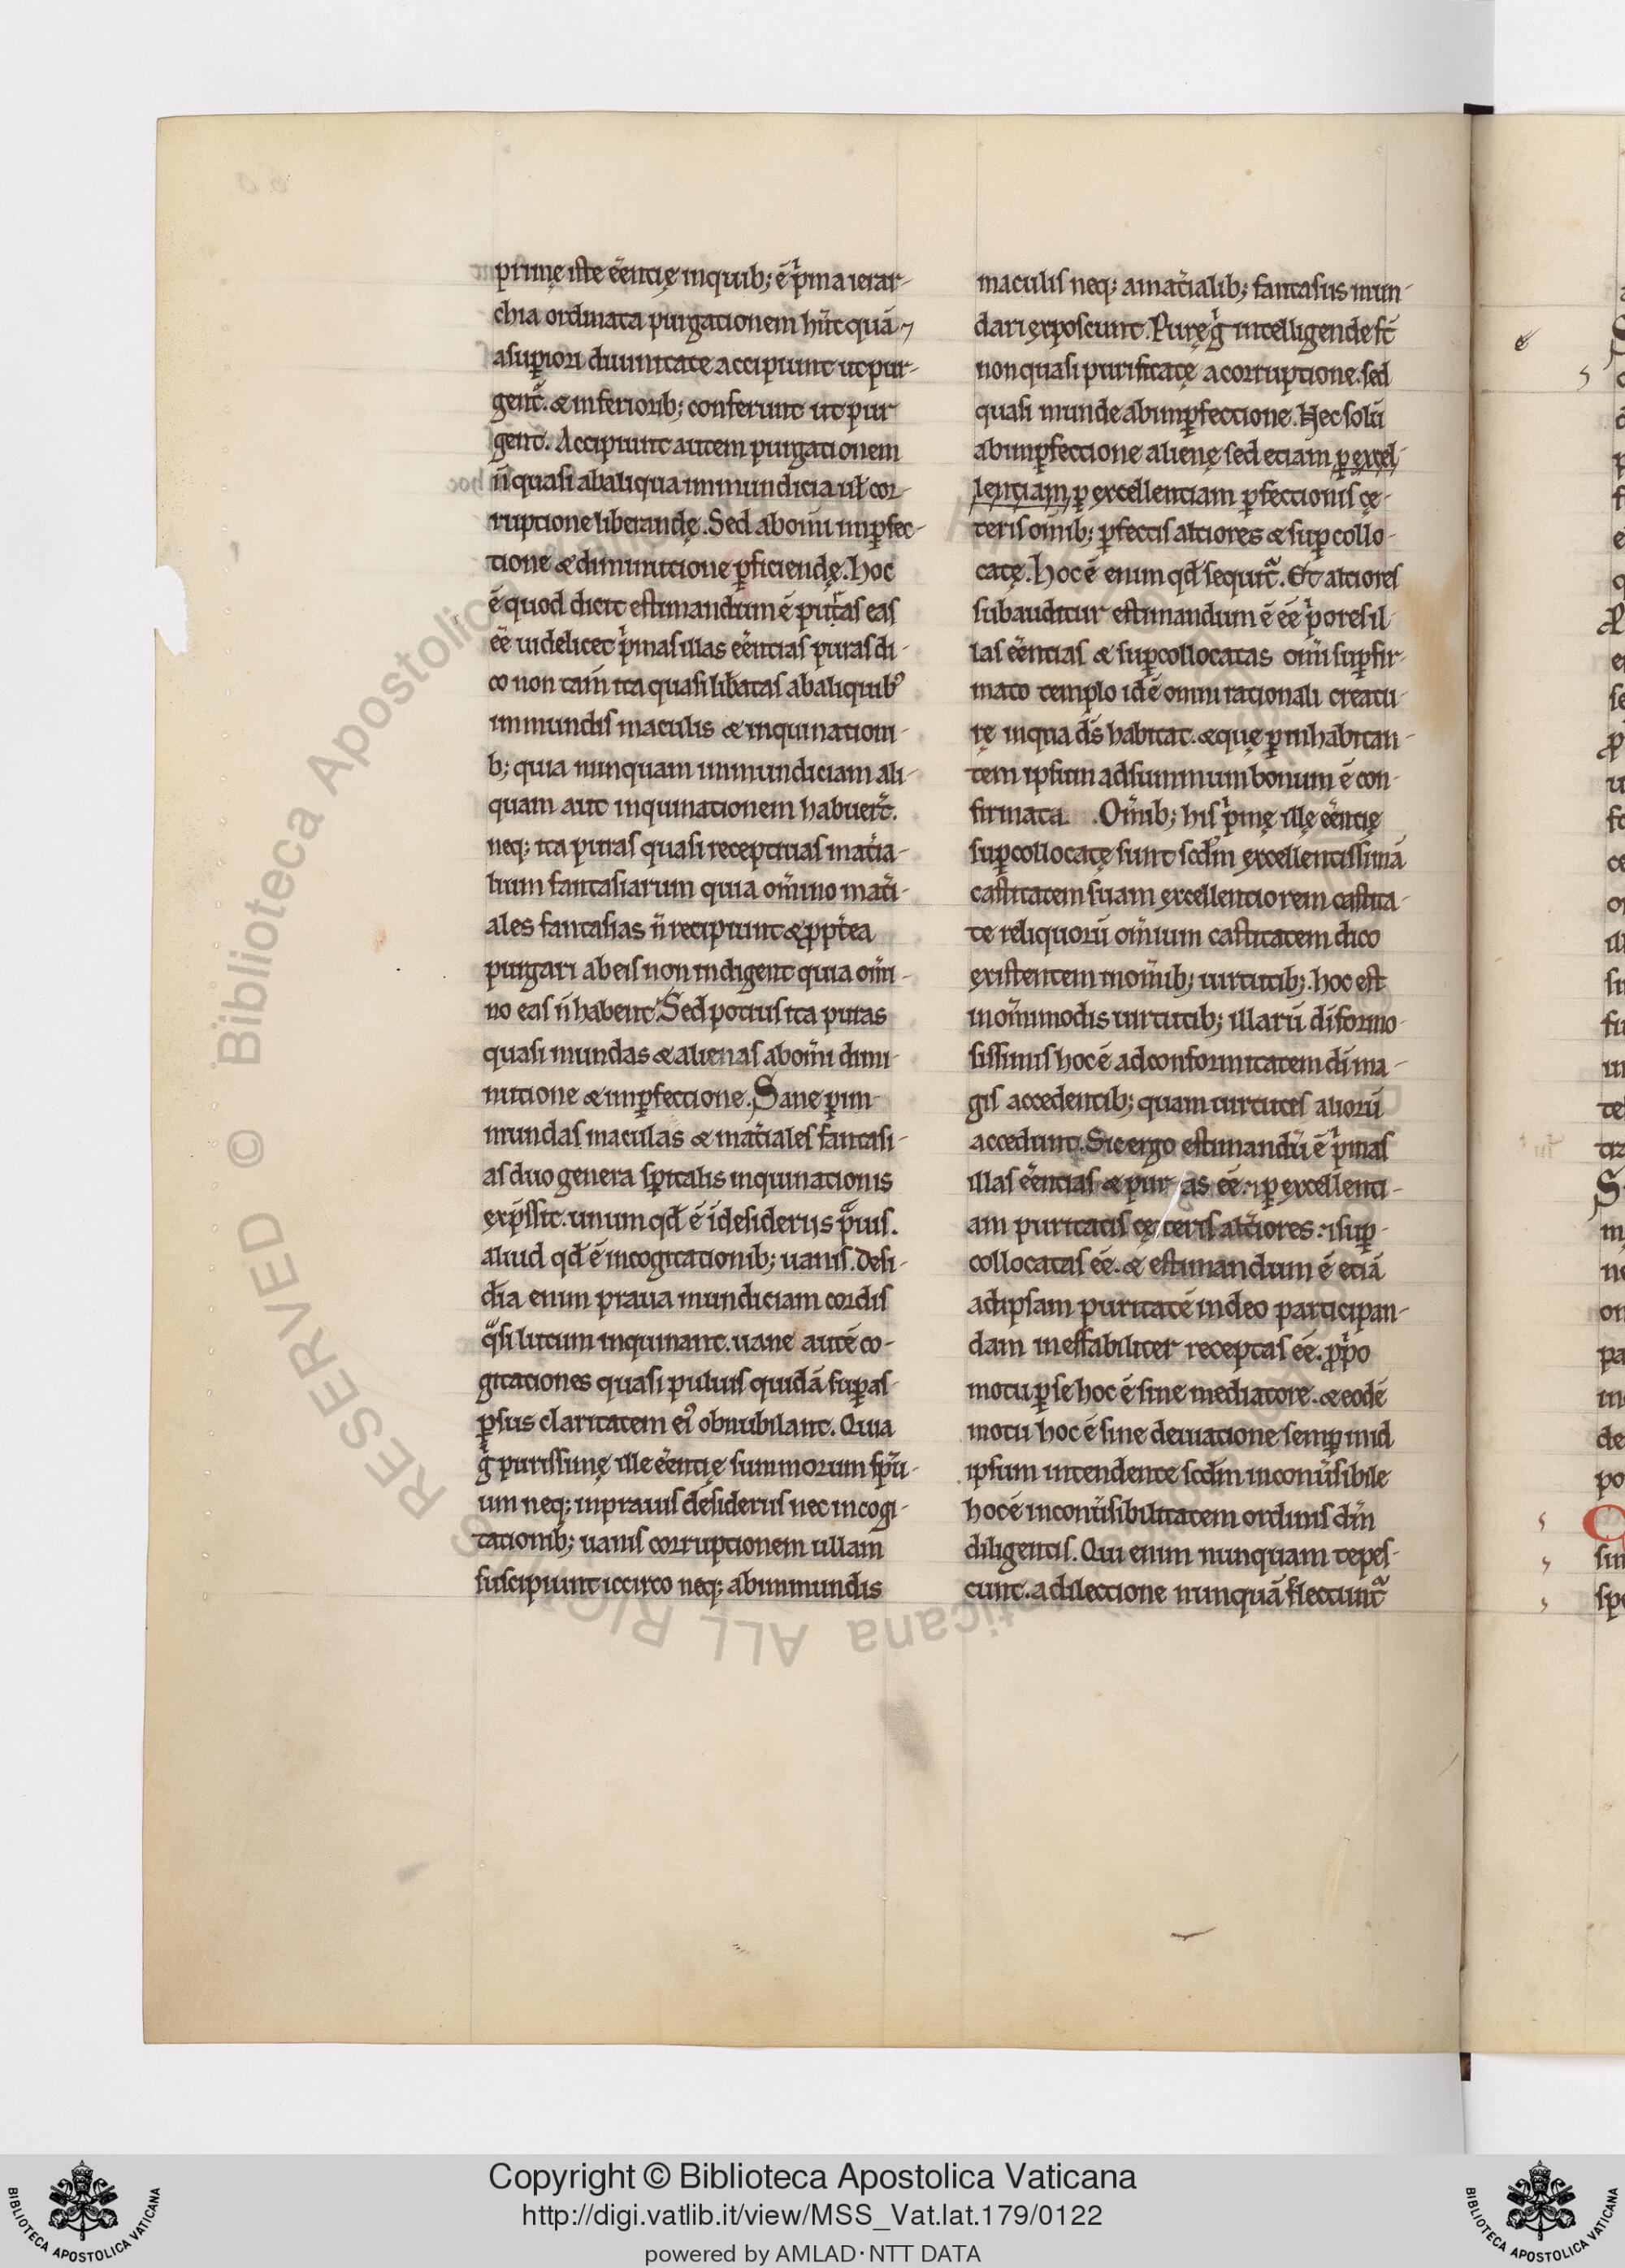 primę iste ēentię inquib; ē p̍ma ierar-
chia ordinata purgationem hn̄t quā ⁊
asupiori diuinitate accipiunt ut pur-
gent᷑. & inferiorib; conferunt ut pur
gent. Accipiunt autem purgationem
n̄ quasi abaliqua immundicia uł cor-
ruptione liberandę. Sed abom̄i imꝑfec-
tione & diminutione ꝑficiendę. hoc
ē quod dicit estimandum ē puras eas
ēē uidelicet p̍mas illas ēentias puras di-
co non tam̄ ita quasi libatas abaliquibꝰ
immundis maculis & inquinationi-
b; quia nunquam immundiciam ali-
quam aut inquinationem habuer̄t.
neq; ita puras quasi receptiuas mat̄ia-
lium fantasiarum quia om̄ino mat̄i-
ales fantasias n̄ recipiunt & ꝓpt̄ea
purgari abeis non indigent quia om̄i-
no eas n̄ habent. Sed potius ita puras
quasi mundas & alienas abom̄i dimi-
nutione & imꝑfectione. Sane ꝑ im-
mundas maculas & mat̄iales fantasi-
as duo genera sp̄italis inquinationis
exp̄ssit. unum qđ ē i desideriis pͣuis.
aliud qđ ē incogitationib; uanis. Desi-
đia enim praua mundiciam cordis
qͣsi lutum inquinant. uane autē co-
gitationes quasi puluis quidā suꝑas-
ꝑsus claritatem eiꝰ obnubilant. Quia
g̍ purissimę ille ēentię summorum sp̄u-
um neq; inprauis desideriis nec incogi-
tationib; uanis corruptionem ullam
suscipiunt iccirco neq; abinmundis
maculis neq; amat̄ialib; fantasiis mun-
dari exposcunt. Purę g̍ intelligende st̄
non quasi purificatę acorruptione. sed
quasi munde abimꝑfectione. Hec solū
abimꝑfectione alienę sed etiam ꝑ excel-
lentiam, ꝑ excellentiam ꝑfectionis cę-
teris om̄ib; ꝑfectis altiores & suꝑcollo-
catę. hoc ē enim qđ sequit᷑. Et altiores
subauditur estimandum ē ēē p̍ores il-
las ēentias & suꝑcollocatas om̄i suꝑfir-
mato templo id ē omni rationali creatu-
rę inqua ds̄ habitat. & quę ꝑ inhabitan-
tem ipsum adsummum bonum ē con-
firmata. Om̄ib; his p̍mę illę ēentię
suꝑcollocatę sunt scđm excellentissimā
castitatem suam excellentiorem castita-
te reliquorū om̄ium castitatem dico
existentem inom̄ib; uirtutib;. hoc est
inom̄imodis uirtutib; illarū diformo-
sissimis hoc ē adconformitatem di ma-
gis accedentib; quam uirtutes aliorū
accedunt. Sic ergo estimandū ē p̍mas
illas ēentias & pur as ēē. ⁊ ꝑ excellenti-
am puritatis cę teris altiores. ⁊ suꝑ-
collocatas ēē. & estimandum ē etiā
adipsam puritatē indeo participan-
dam ineffabiliter receptas ēē. ꝓp̍o
motu ꝑ se hoc ē sine mediatore. & eodē
motu hoc ē sine deuiatione semꝑ inid
ipsum intendente scđm incon̄usibile
hoc ē incon̄usibilitatem ordinis dm̄
diligentis. Qui enim nunquam tepes-
cunt. adilectione nunquā flectunt᷑